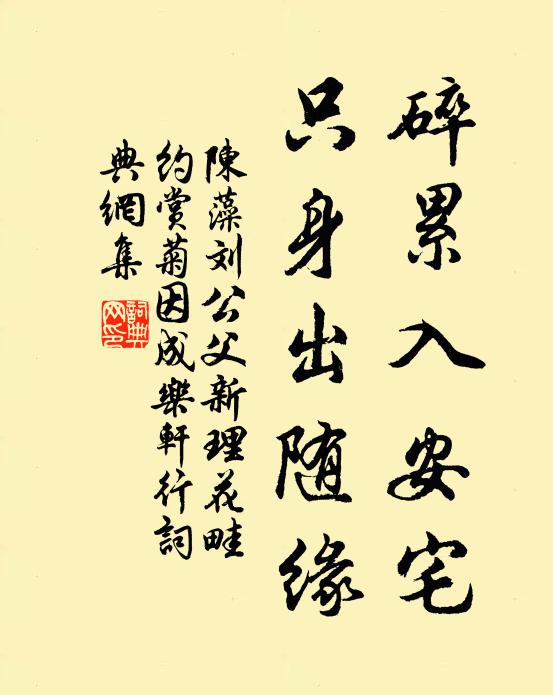 碎累入安宅
只身出随缘
陳藻刘公父新理花畦
约赏菊因成樂軒行詞
典網集
詞典
网印